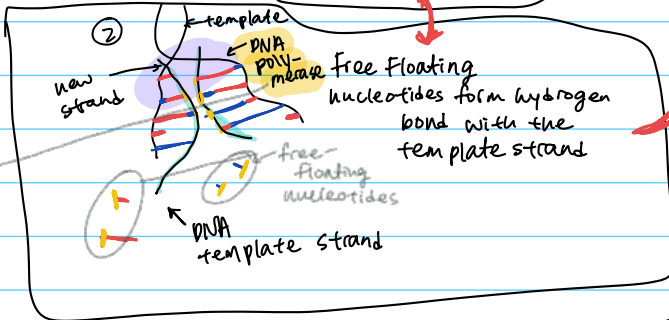 ②
template
DNA
poly-
merase
new
strand
Free Floating
nucleotides form hydrogen
bond with the
template strand
free-
floating
nucleotides
DNA
template strand